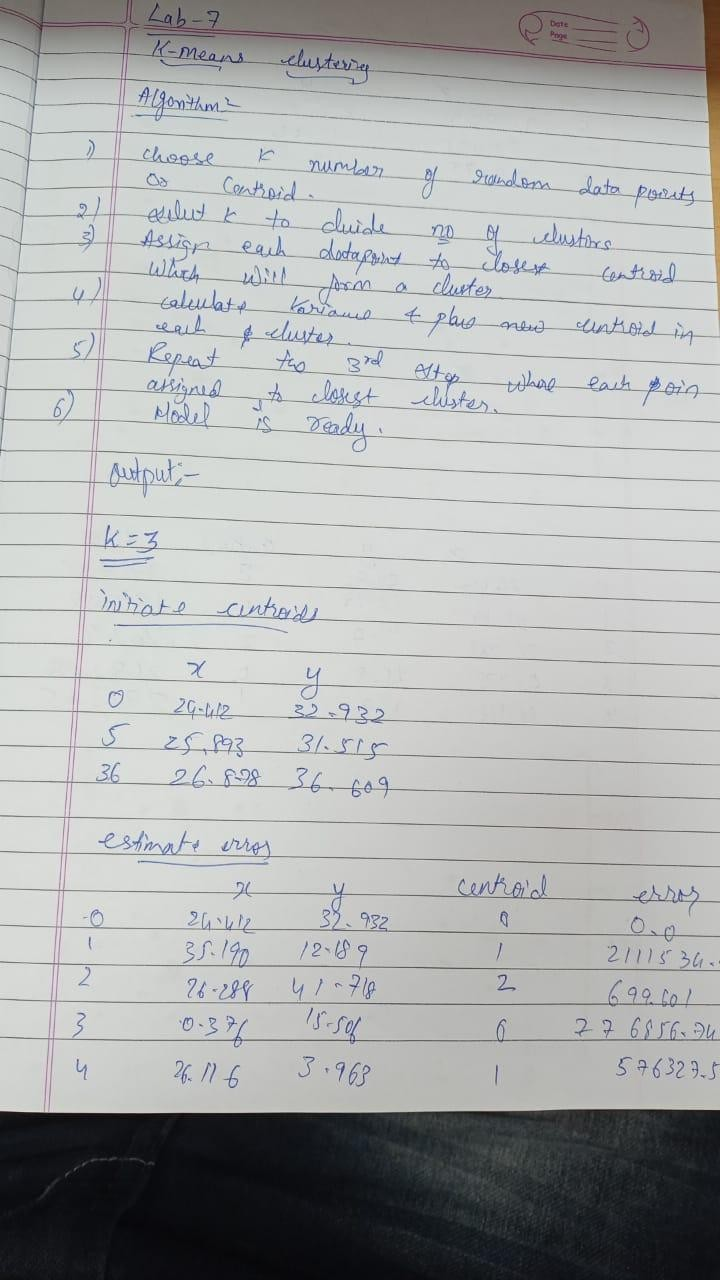 Lab-7
Date
Page
K-means clustering
Algorithm:-
1) choose K number of random data points
Or Centroid.
2) select K to divide no of clusters
3) Assign each datapoint to closest centroid
Which will form a cluster
4) calculate variance & place new centroid in
each cluster.
5) Repeat the 3rd step where each poin
assigned to closest cluster.
6) Model is ready.
output:-
K=3
initiate centroids
x y
0 24.412 32.932
5 25.893 31.515
36 26.878 36.609
estimate error
x y centroid error
0 24.412 32.932 0 0.0
1 35.190 12.189 1 2111534.
2 26.288 41.718 2 699.601
3 0.376 15.506 0 776856.74
4 26.116 3.963 1 576327.5